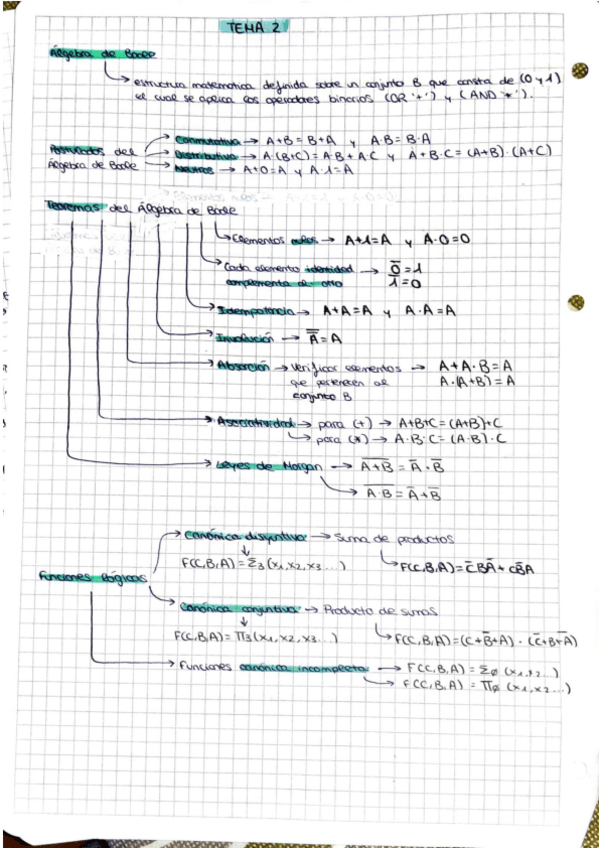 TEMA 2
Álgebra de Boole
estructura matematica definida sobre un conjunto B que consta de (0 y 1)
el cual se aplica los operadores binarios (OR '+') y (AND '*').
Conmutativa → A+B = B+A y A·B = B·A
Postulados del
Distributiva → A·(B+C) = A·B + A·C y A+B·C = (A+B)·(A+C)
Álgebra de Boole
Neutros → A+0=A y A·1=A
Teoremas del Álgebra de Boole
Elementos nulos → A+1=A y A·0=0
Cada elemento identidad → 0̅=1
complementa al otro 1̅=0
Idempotencia → A+A=A y A·A=A
Involución → A̿=A
Absorción → Verificar elementos → A+A·B=A
que pertenecen al A·(A+B)=A
conjunto B
Asociatividad → para (+) → A+B+C=(A+B)+C
→ para (*) → A·B·C=(A·B)·C
Leyes de Morgan → A̅+̅B̅ = A̅·B̅
→ A̅·̅B̅ = A̅+B̅
Canónica disyuntiva → Suma de productos
F(C,B,A)=Σ3(x1,x2,x3...) F(C,B,A)=C̅BA̅+CB̅A
Funciones lógicas
Canónica conjuntiva → Producto de sumas
F(C,B,A)=Π3(x1,x2,x3...) F(C,B,A)=(C+B̅+A)·(C̅+B+A̅)
Funciones canónica incompleta → F(C,B,A)=Σø(x1,x2...)
→ F(C,B,A)=Πø(x1,x2...)